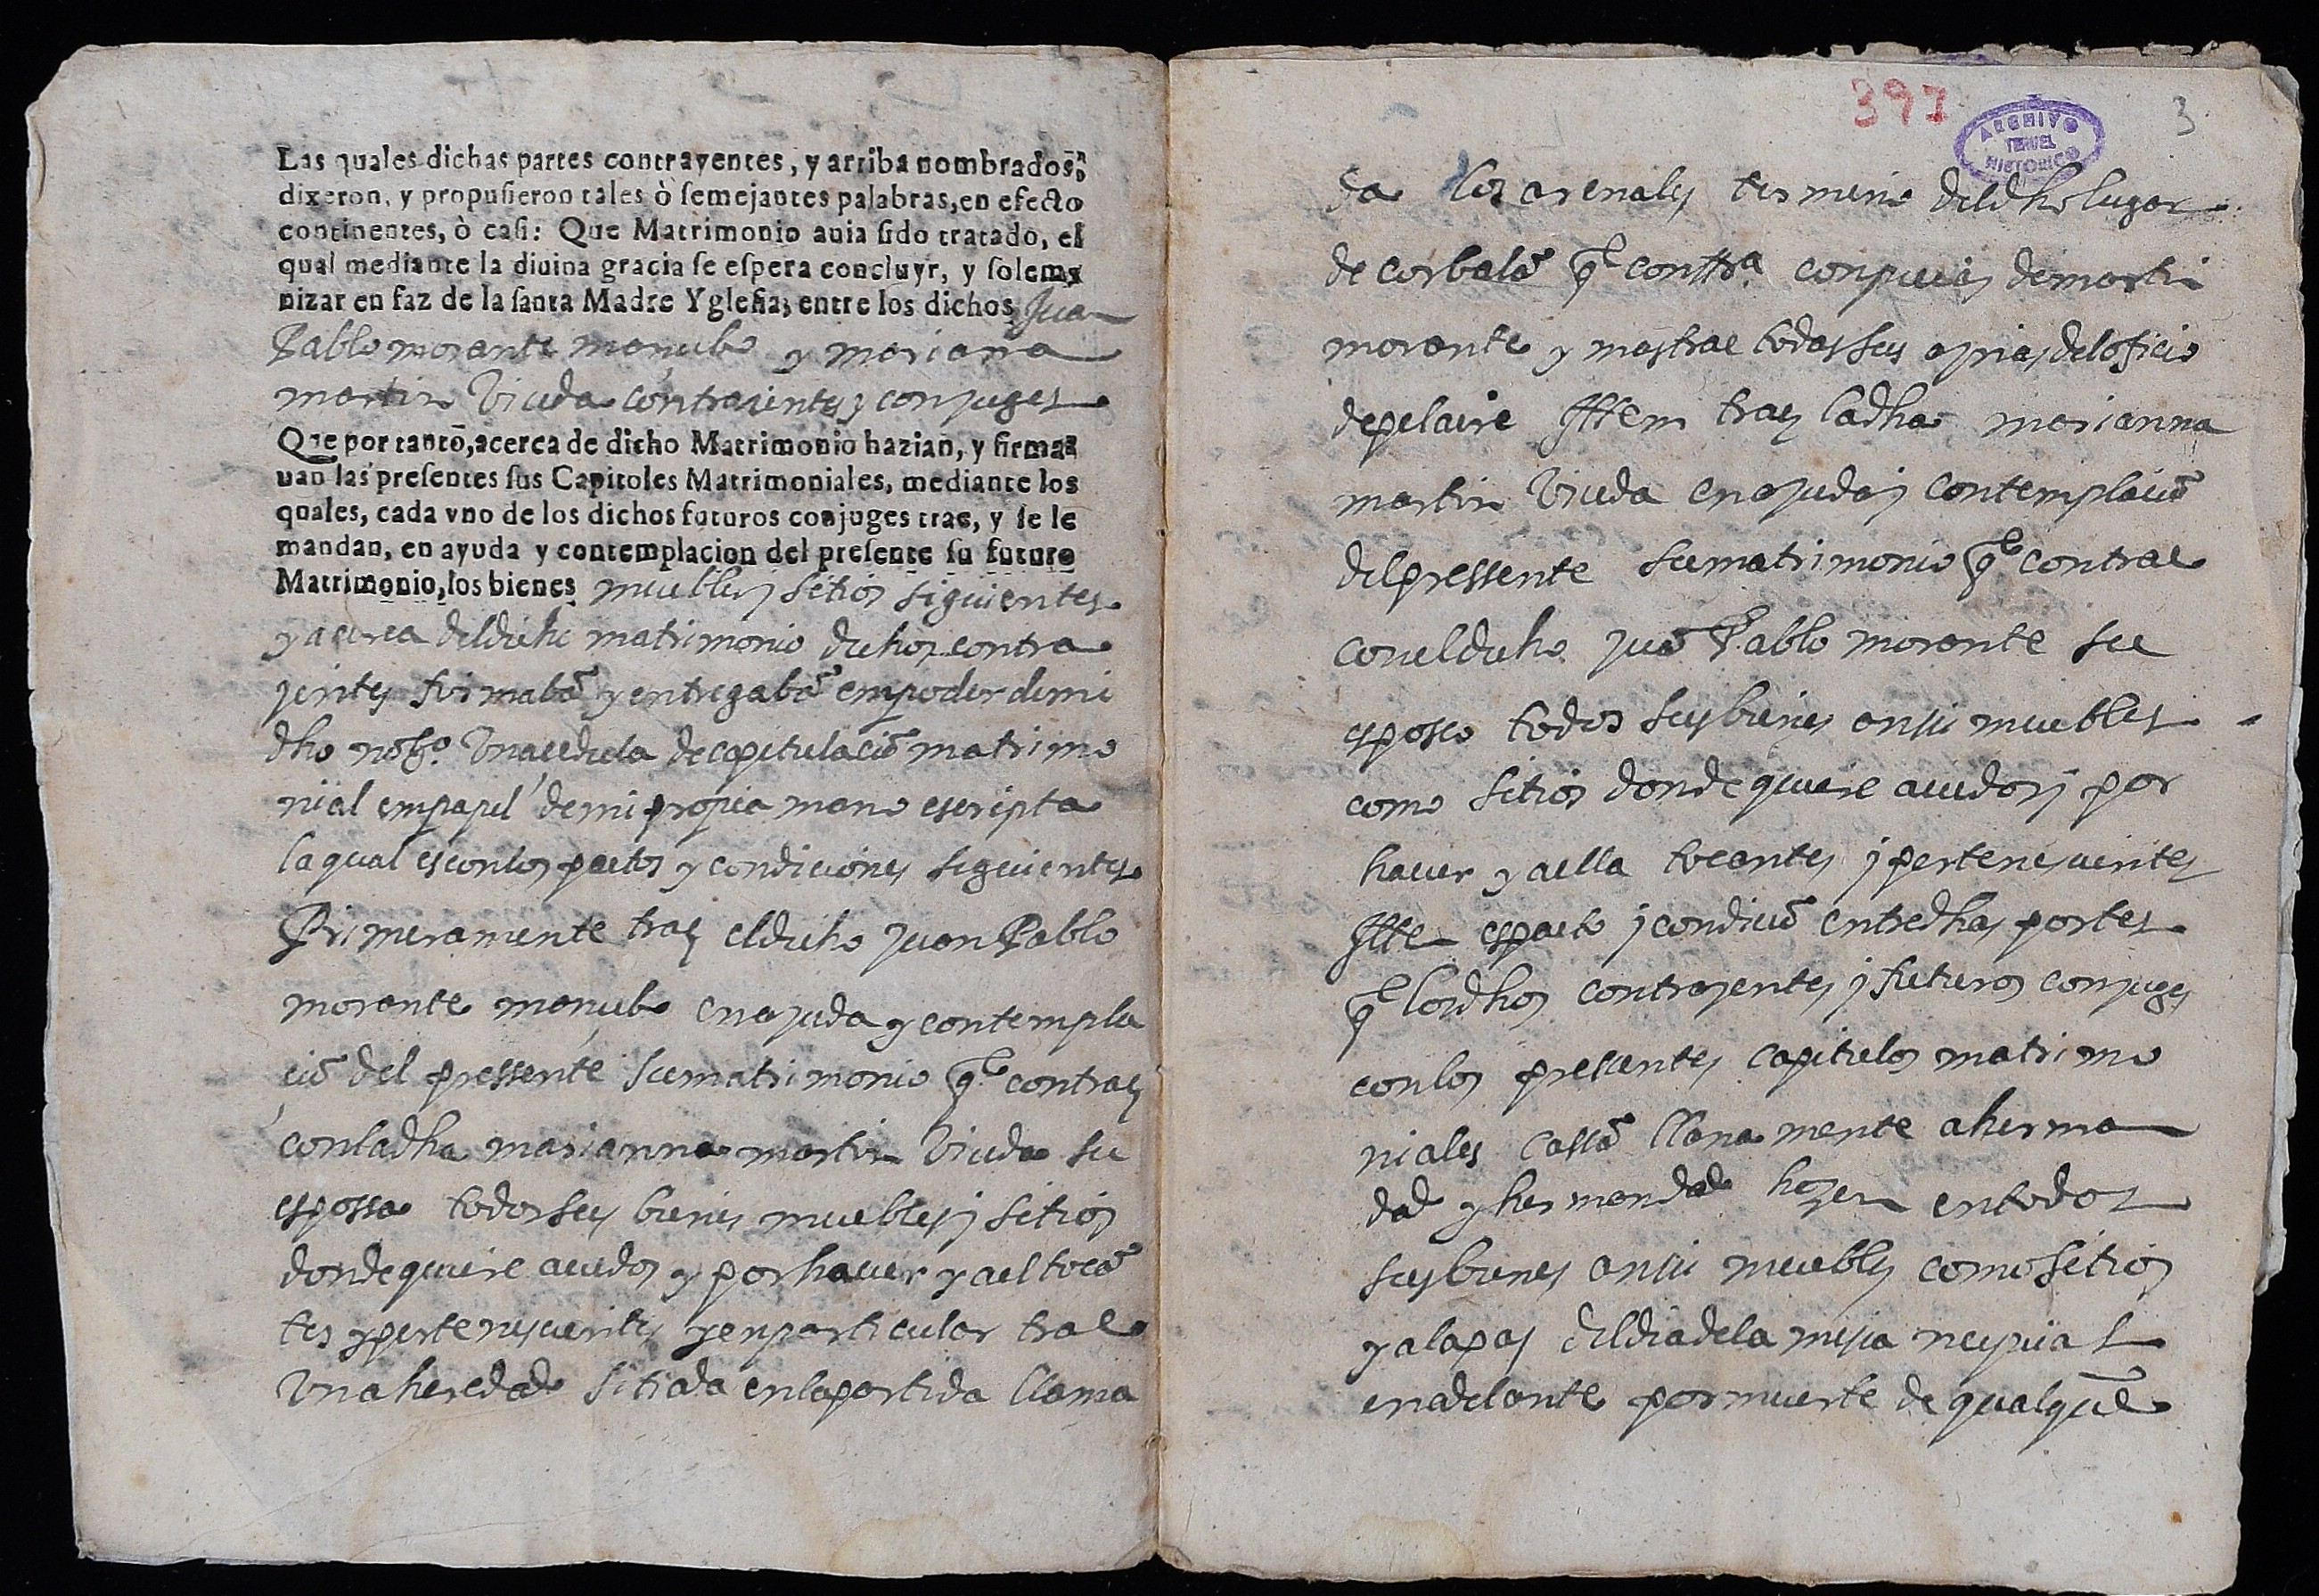 Las quales dichas partes contrayentes, y arriba nombrados,
dixeron, y propuſieron tales ò ſemejantes palabras, en efecto
continentes, ò caſi: Que Matrimonio auia ſido tratado, el
qual mediante la diuina gracia ſe eſpera concluyr, y ſolem-
nizar en faz de la ſanta Madre Ygleſia, entre los dichos Juan
Pablo morante mançebo y mariana
martin Viuda contraientes y conjuges
Que por tanto, acerca de dicho Matrimonio hazian, y firma-
uan las preſentes ſus Capitoles Matrimoniales, mediante los
quales, cada vno de los dichos futuros conjuges trae, y ſe le
mandan, en ayuda y contemplacion del preſente ſu futuro
Matrimonio, los bienes muebles y sitios siguientes
y acerca del dicho matrimonio dichos contra
yentes firmabã y entregabã em poder de mi
dho notº. Una cedula de capitulaciõ matrimo
nial em papel de mi propia mano escripta
la qual es con los pactos y condiciones siguientes
Primeramente trae el dicho juan Pablo
morante mançebo en ajuda y contempla
ciõ del pressente su matrimonio q̃ contrae
con la dha marianna martin Viuda su
espossa todos sus bienes muebles y sitios
donde quiere auidos y por hauer y a el tocã
tes y pertenescientes y en particular trae
Una heredad sitiada en la partida llama
397
3
ARCHIVO
TERUEL
HISTORICO
da los arenales termino del dho lugar
de corbalã q̃ confrª. con pieças de marti
morante y mas trae todas sus aprias del oficio
de pelaire Ittem trae la dha marianna
martin Viuda en ajuda y contemplaciõ
del pressente su matrimonio q̃ contrae
con el dicho juã Pablo morante su
esposo todos sus bienes ansi muebles
como sitios donde quiere auidos y por
hauer y a ella tocantes y pertenescientes
Itte es pacto y condiciõ entre dhas partes
q̃ los dhos contrayentes y futuros conjuges
con los presentes capitulos matrimo
niales cassã llanamente a herman
dad y hermandad hazen en todos
sus bienes ansi muebles como sitios
y a la paz del dia de la misa nupcial
en adelante por muerte de qualquie